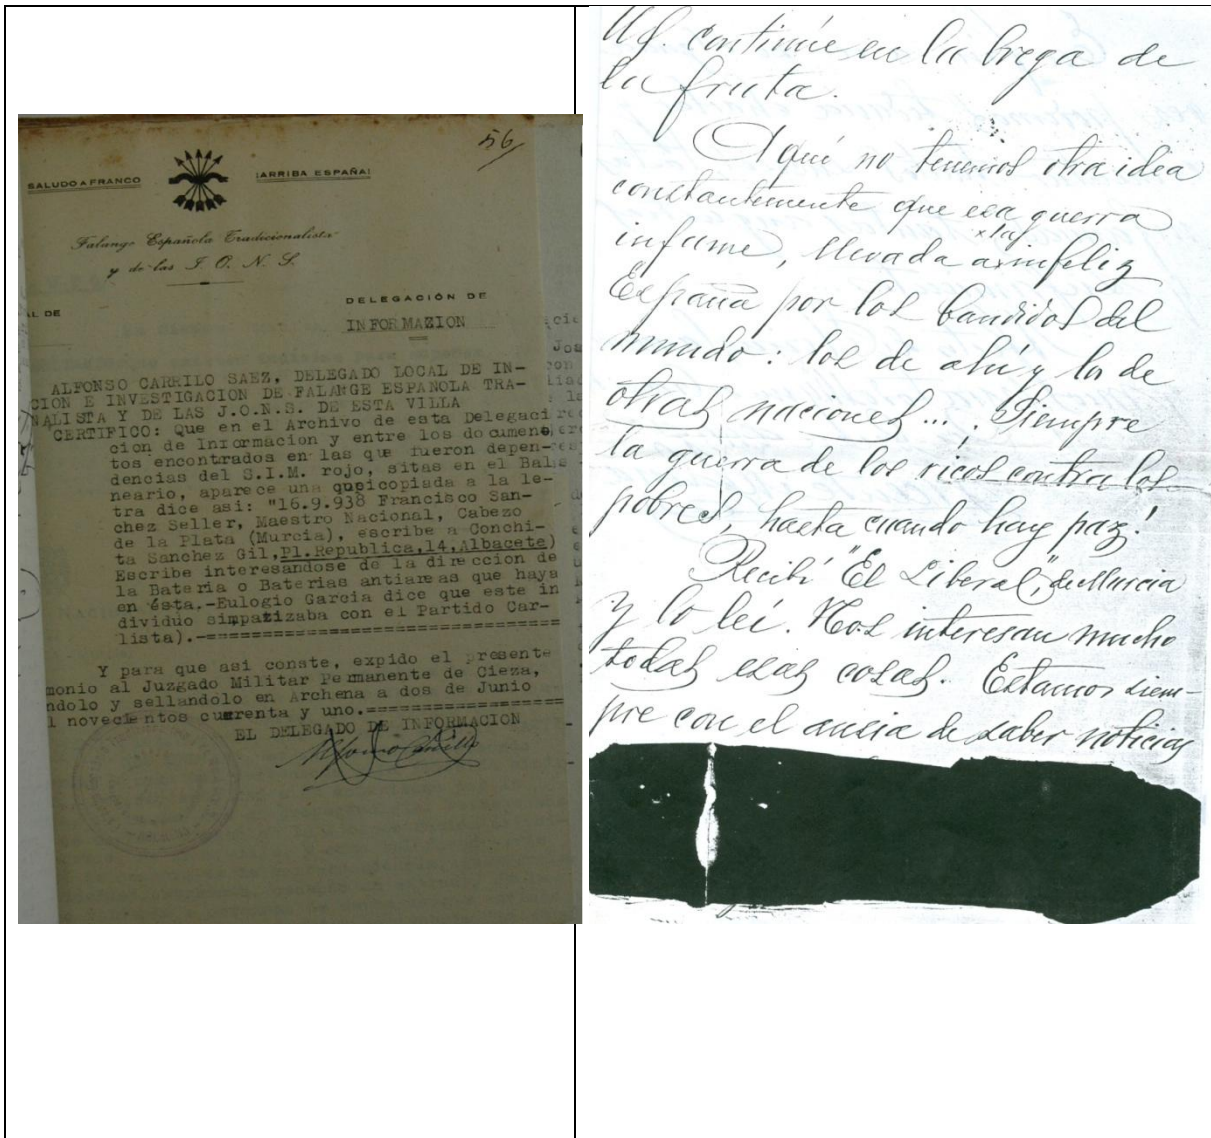 56
SALUDO A FRANCO
¡ARRIBA ESPAÑA!
Falange Española Tradicionalista
y de las J. O. N. S.
AL DE
DELEGACIÓN DE
INFORMAZION
ALFONSO CARRILO SAEZ, DELEGADO LOCAL DE IN-
CION E INVESTIGACION DE FALANGE ESPAÑOLA TRA-
NALISTA Y DE LAS J.O.N.S. DE ESTA VILLA
CERTIFICO: Que en el Archivo de esta Delegaci
cion de Informacion y entre los documen
tos encontrados en las que fueron depen-
dencias del S.I.M. rojo, sitas en el Bal
neario, aparece una que copiada a la le-
tra dice asi: "16.9.938 Francisco San-
chez Seller, Maestro Nacional, Cabezo
de la Plata (Murcia), escribe a Conchi-
ta Sanchez Gil,Pl.Republica,14,Albacete)
Escribe interesandose de la direccion de
la Bateria o Baterias antiareas que haya
en ésta.-Eulogio Garcia dice que este in
dividuo simpatizaba con el Partido Car-
lista).-==================
Y para que asi conste, expido el presente
monio al Juzgado Militar Permanente de Cieza,
ndolo y sellandolo en Archena a dos de Junio
l novecientos cuarenta y uno.==================
EL DELEGADO DE INFORMACION
Ud. continúe en la brega de
la fruta.
Aquí no tenemos otra idea
constantemente que esa guerra
infame, llevada a infeliz
España por los bandidos del
mundo: los de ahí y los de
otras naciones... Siempre
la guerra de los ricos contra los
pobres, hasta cuando hay paz!
Recibí "El Liberal", de Murcia
y lo leí. Nos interesan mucho
todas esas cosas. Estamos siem-
pre con el ansia de saber noticias